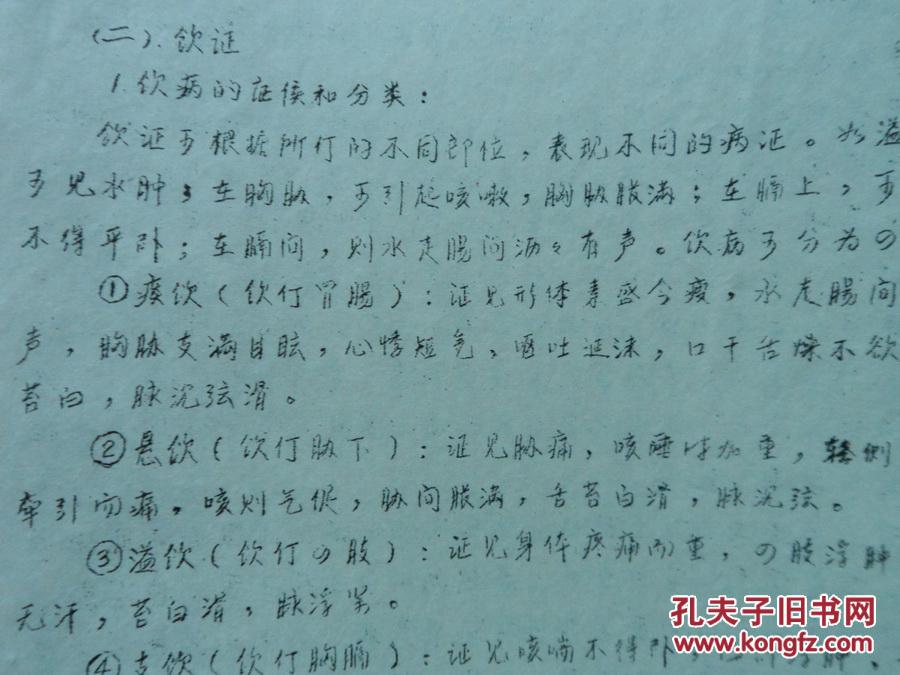 (二).饮证
1.饮病的证候和分类：
饮证可根据所停的不同部位，表现不同的病证。如溢
可见水肿；在胸胁，可引起咳嗽，胸胁胀满；在膈上，可
不得平卧；在膈间，则水走肠间沥々有声。饮病可分为四
①痰饮（饮停胃肠）：证见形体素盛今瘦，水走肠间
声，胸胁支满目眩，心悸短气，呕吐涎沫，口干舌燥不欲
苔白，脉沉弦滑。
②悬饮（饮停胁下）：证见胁痛，咳唾时加重，转侧
牵引而痛，咳则气促，胁间胀满，舌苔白滑，脉沉弦。
③溢饮（饮停四肢）：证见身体疼痛而重，四肢浮肿
无汗，苔白滑，脉浮紧。
④支饮（饮停胸膈）：证见咳喘不得卧
孔夫子旧书网
www.kongfz.com